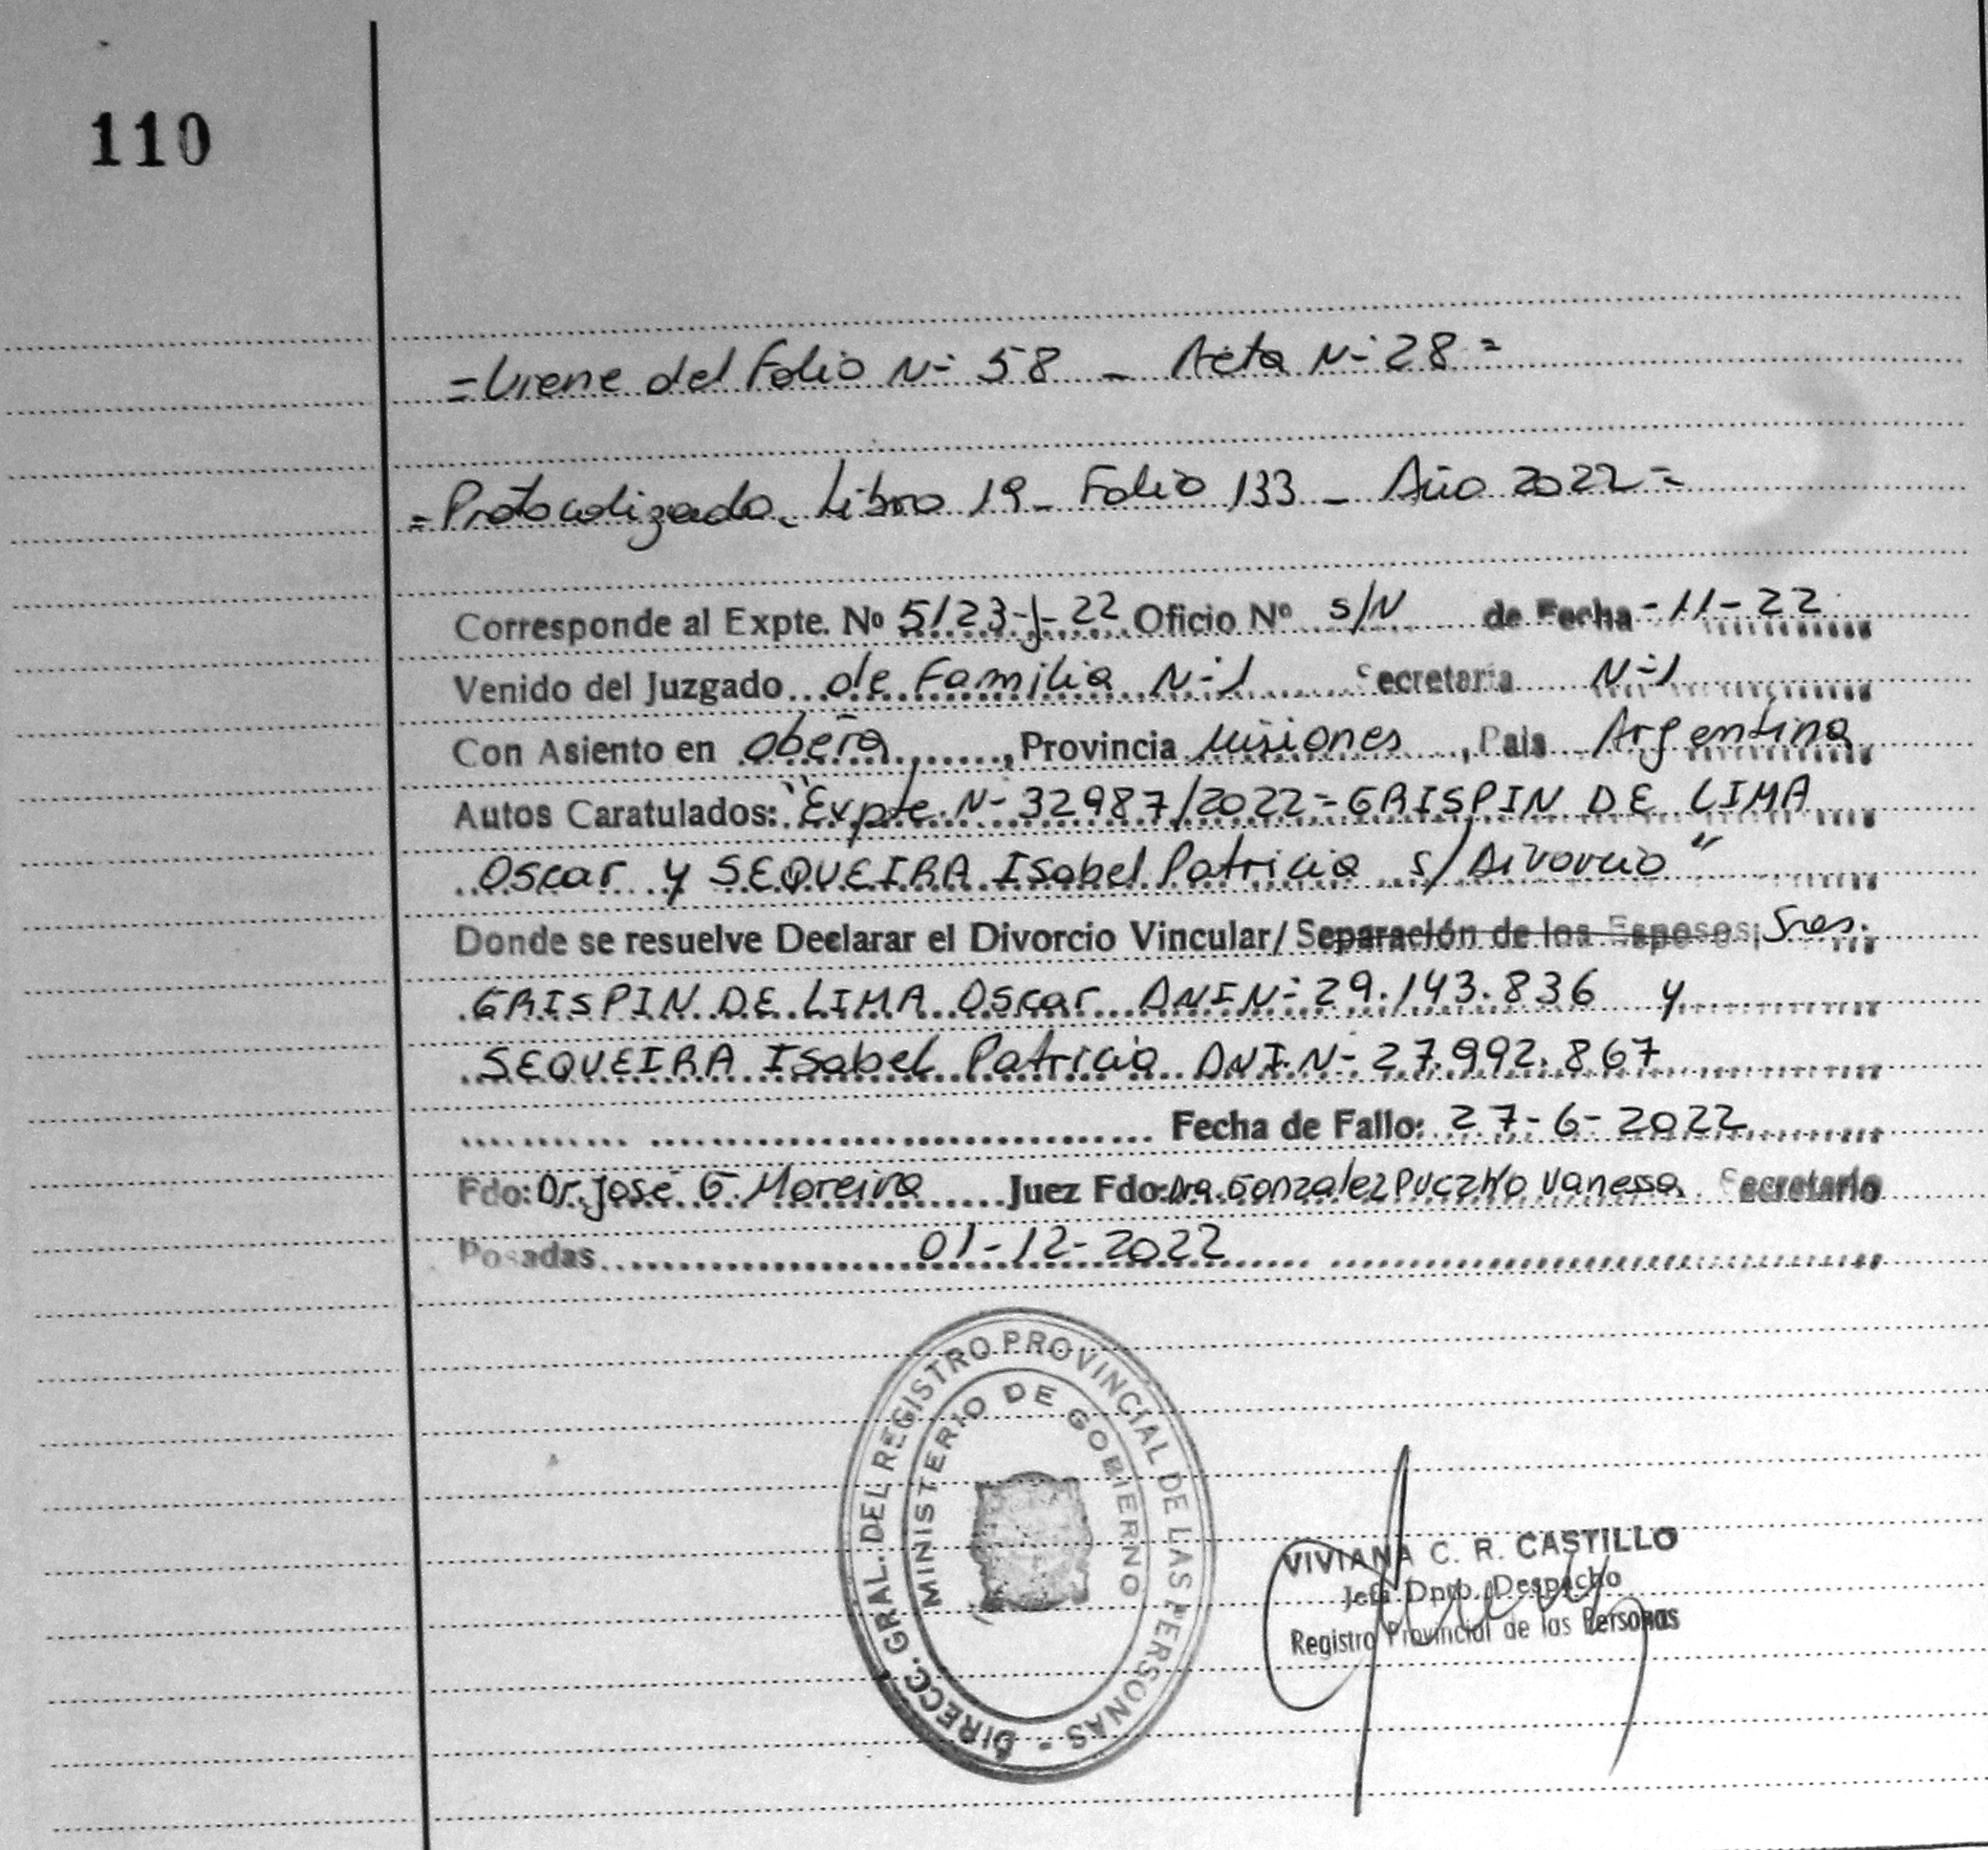 110
=Viene del Folio N- 58 - Acta N- 28 =
= Protocolizado. Libro 19 - Folio 133 - Año 2022 =
Corresponde al Expte. Nº 5123-J-22 Oficio Nº s/N de Fecha -11-22
Venido del Juzgado de Familia N-1 Secretaria N-1
Con Asiento en Oberá, Provincia Misiones, Pais Argentina
Autos Caratulados: "Expte N- 32987/2022 - GRISPIN DE LIMA
Oscar y SEQUEIRA Isabel Patricia s/Divorcio"
Donde se resuelve Declarar el Divorcio Vincular/ Separación de los Esposos; Sres.
GRISPIN DE LIMA Oscar DNI N- 29.143.836 y
SEQUEIRA Isabel Patricia DNI N- 27.992.867
Fecha de Fallo: 27-6-2022
Fdo: Dr. José G. Moreira Juez Fdo: Dra. Gonzalez Puczko Vanessa Secretario
Posadas 01-12-2022
DIRECC. GRAL. DEL REGISTRO PROVINCIAL DE LAS PERSONAS -
MINISTERIO DE GOBIERNO
VIVIANA C. R. CASTILLO
Jefa Dpto. Despacho
Registro Provincial de las Personas